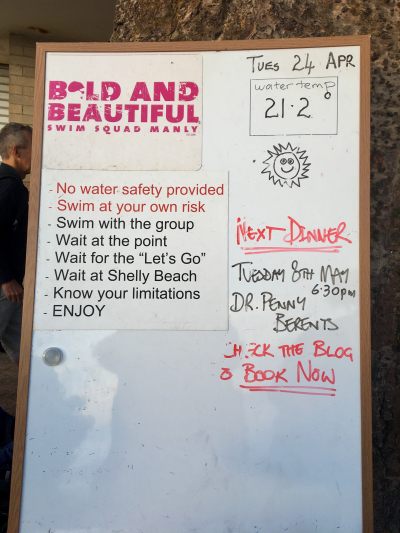 BOLD AND
BEAUTIFUL
SWIM SQUAD MANLY
- No water safety provided
- Swim at your own risk
- Swim with the group
- Wait at the point
- Wait for the “Let's Go”
- Wait at Shelly Beach
- Know your limitations
- ENJOY
TUES 24 APR
water temp
21.2°
NEXT DINNER
TUESDAY 8TH MAY
6:30pm
DR. PENNY
BERENTS
CHECK THE BLOG
& BOOK NOW